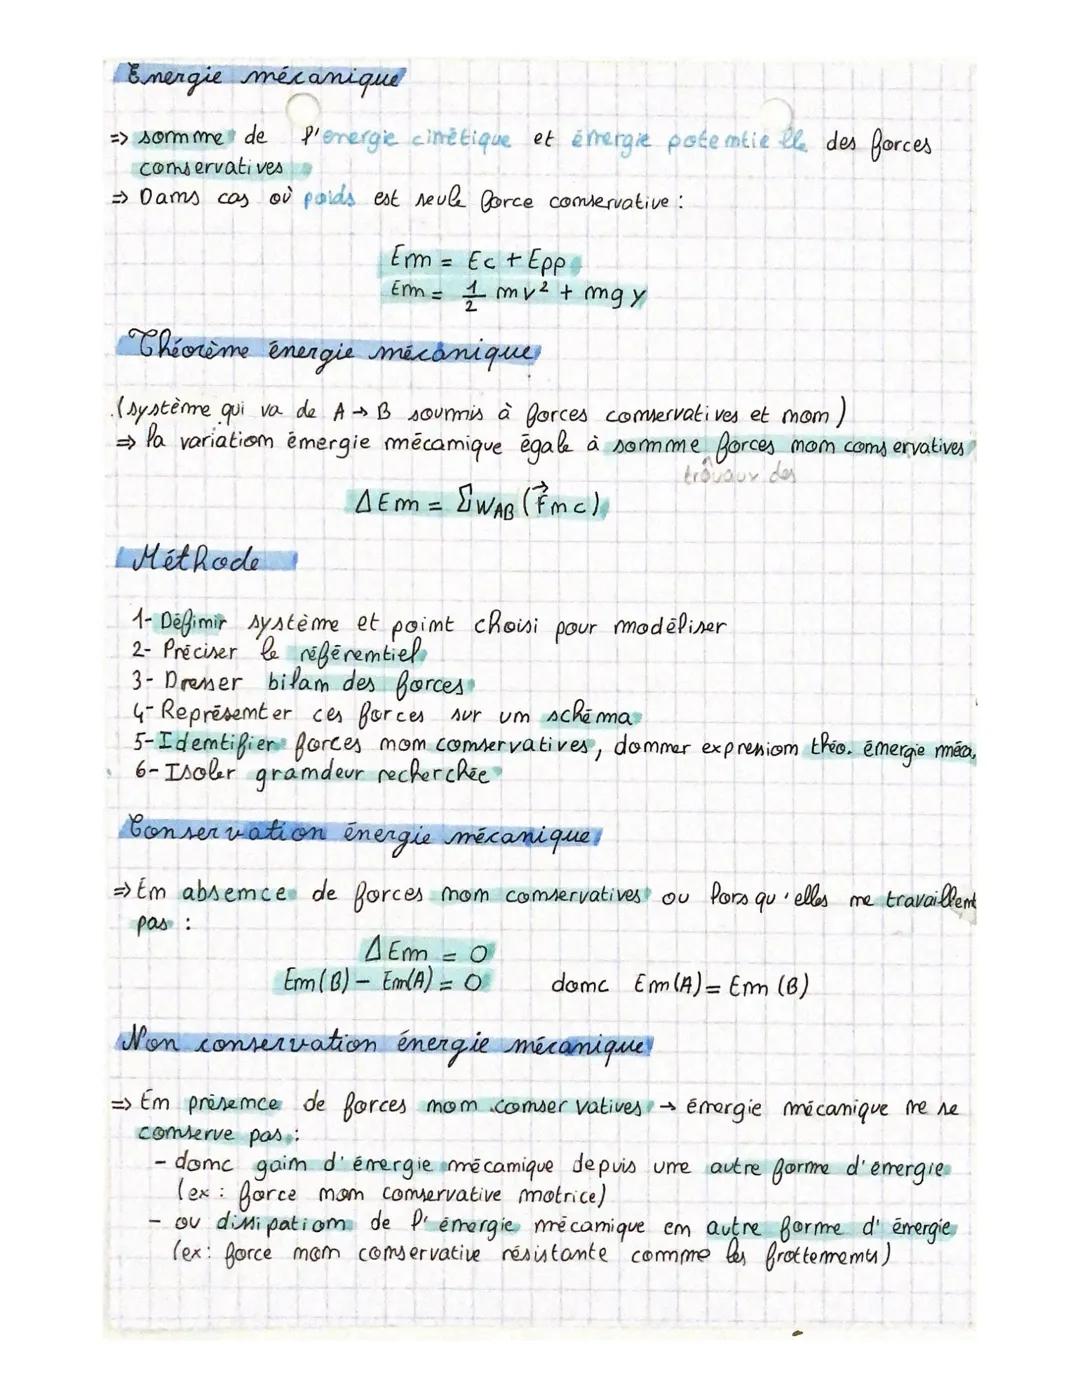 Energie mécanique
=> somme de l'energie cinétique et énergie potentielle des forces
conservatives
=> Dans cas où poids est seule force conservative :
Em = Ec + Epp
Em = 1/2 mv² + mgy
Théorème énergie mécanique
(système qui va de A → B soumis à forces conservatives et non)
=> la variation énergie mécanique égale à somme forces non conservatives
travaux des
ΔEm = ΣWAB (F⃗nc)
Méthode
1- Définir système et point choisi pour modéliser
2- Préciser le référentiel
3- Dresser bilan des forces
4- Représenter ces forces sur un schéma
5- Identifier forces non conservatives, donner expression théo. énergie méca,
6- Isoler grandeur recherchée
Conservation énergie mécanique
=> En absence de forces non conservatives ou lorsqu'elles ne travaillent
pas :
ΔEm = 0
Em(B) - Em(A) = 0 donc Em(A) = Em(B)
Non conservation énergie mécanique
=> En présence de forces non conservatives → énergie mécanique ne se
conserve pas :
- donc gain d'énergie mécanique depuis une autre forme d'énergie
(ex : force non conservative motrice)
- ou dissipation de l'énergie mécanique en autre forme d'énergie
(ex : force non conservative résistante comme les frottements)